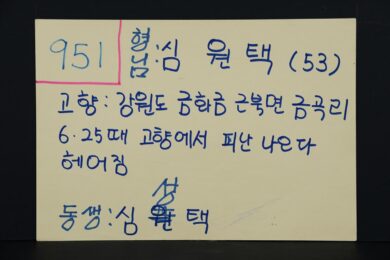 951
형님:심 원 택 (53)
고향: 강원도 금화금 근북면 금곡리
6·25때 고향에서 피난 나오다
헤어짐
동생:심 상 택